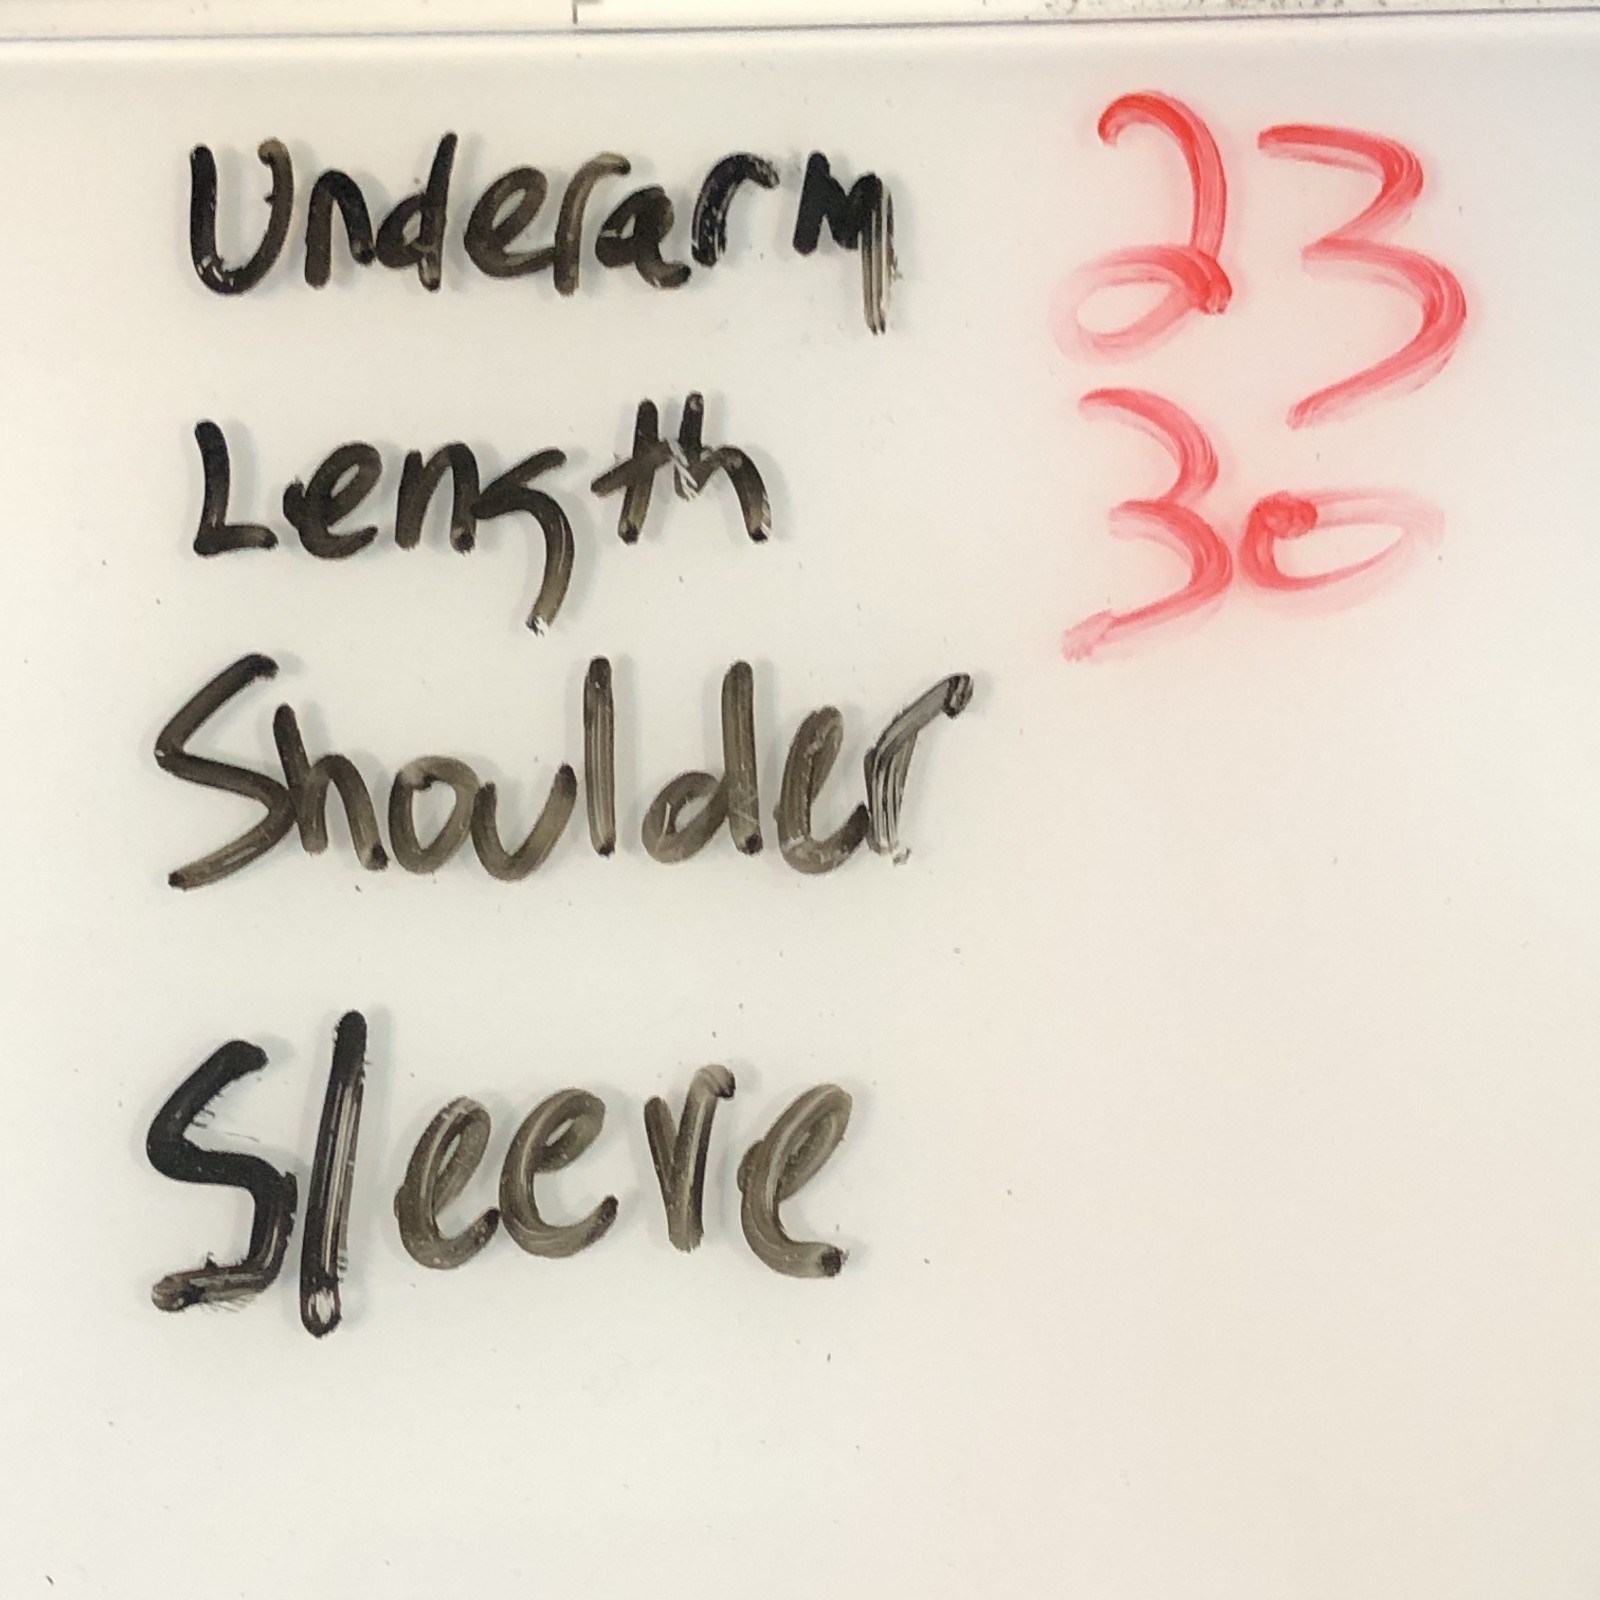 Underarm 23
Length 30
Shoulder
Sleeve